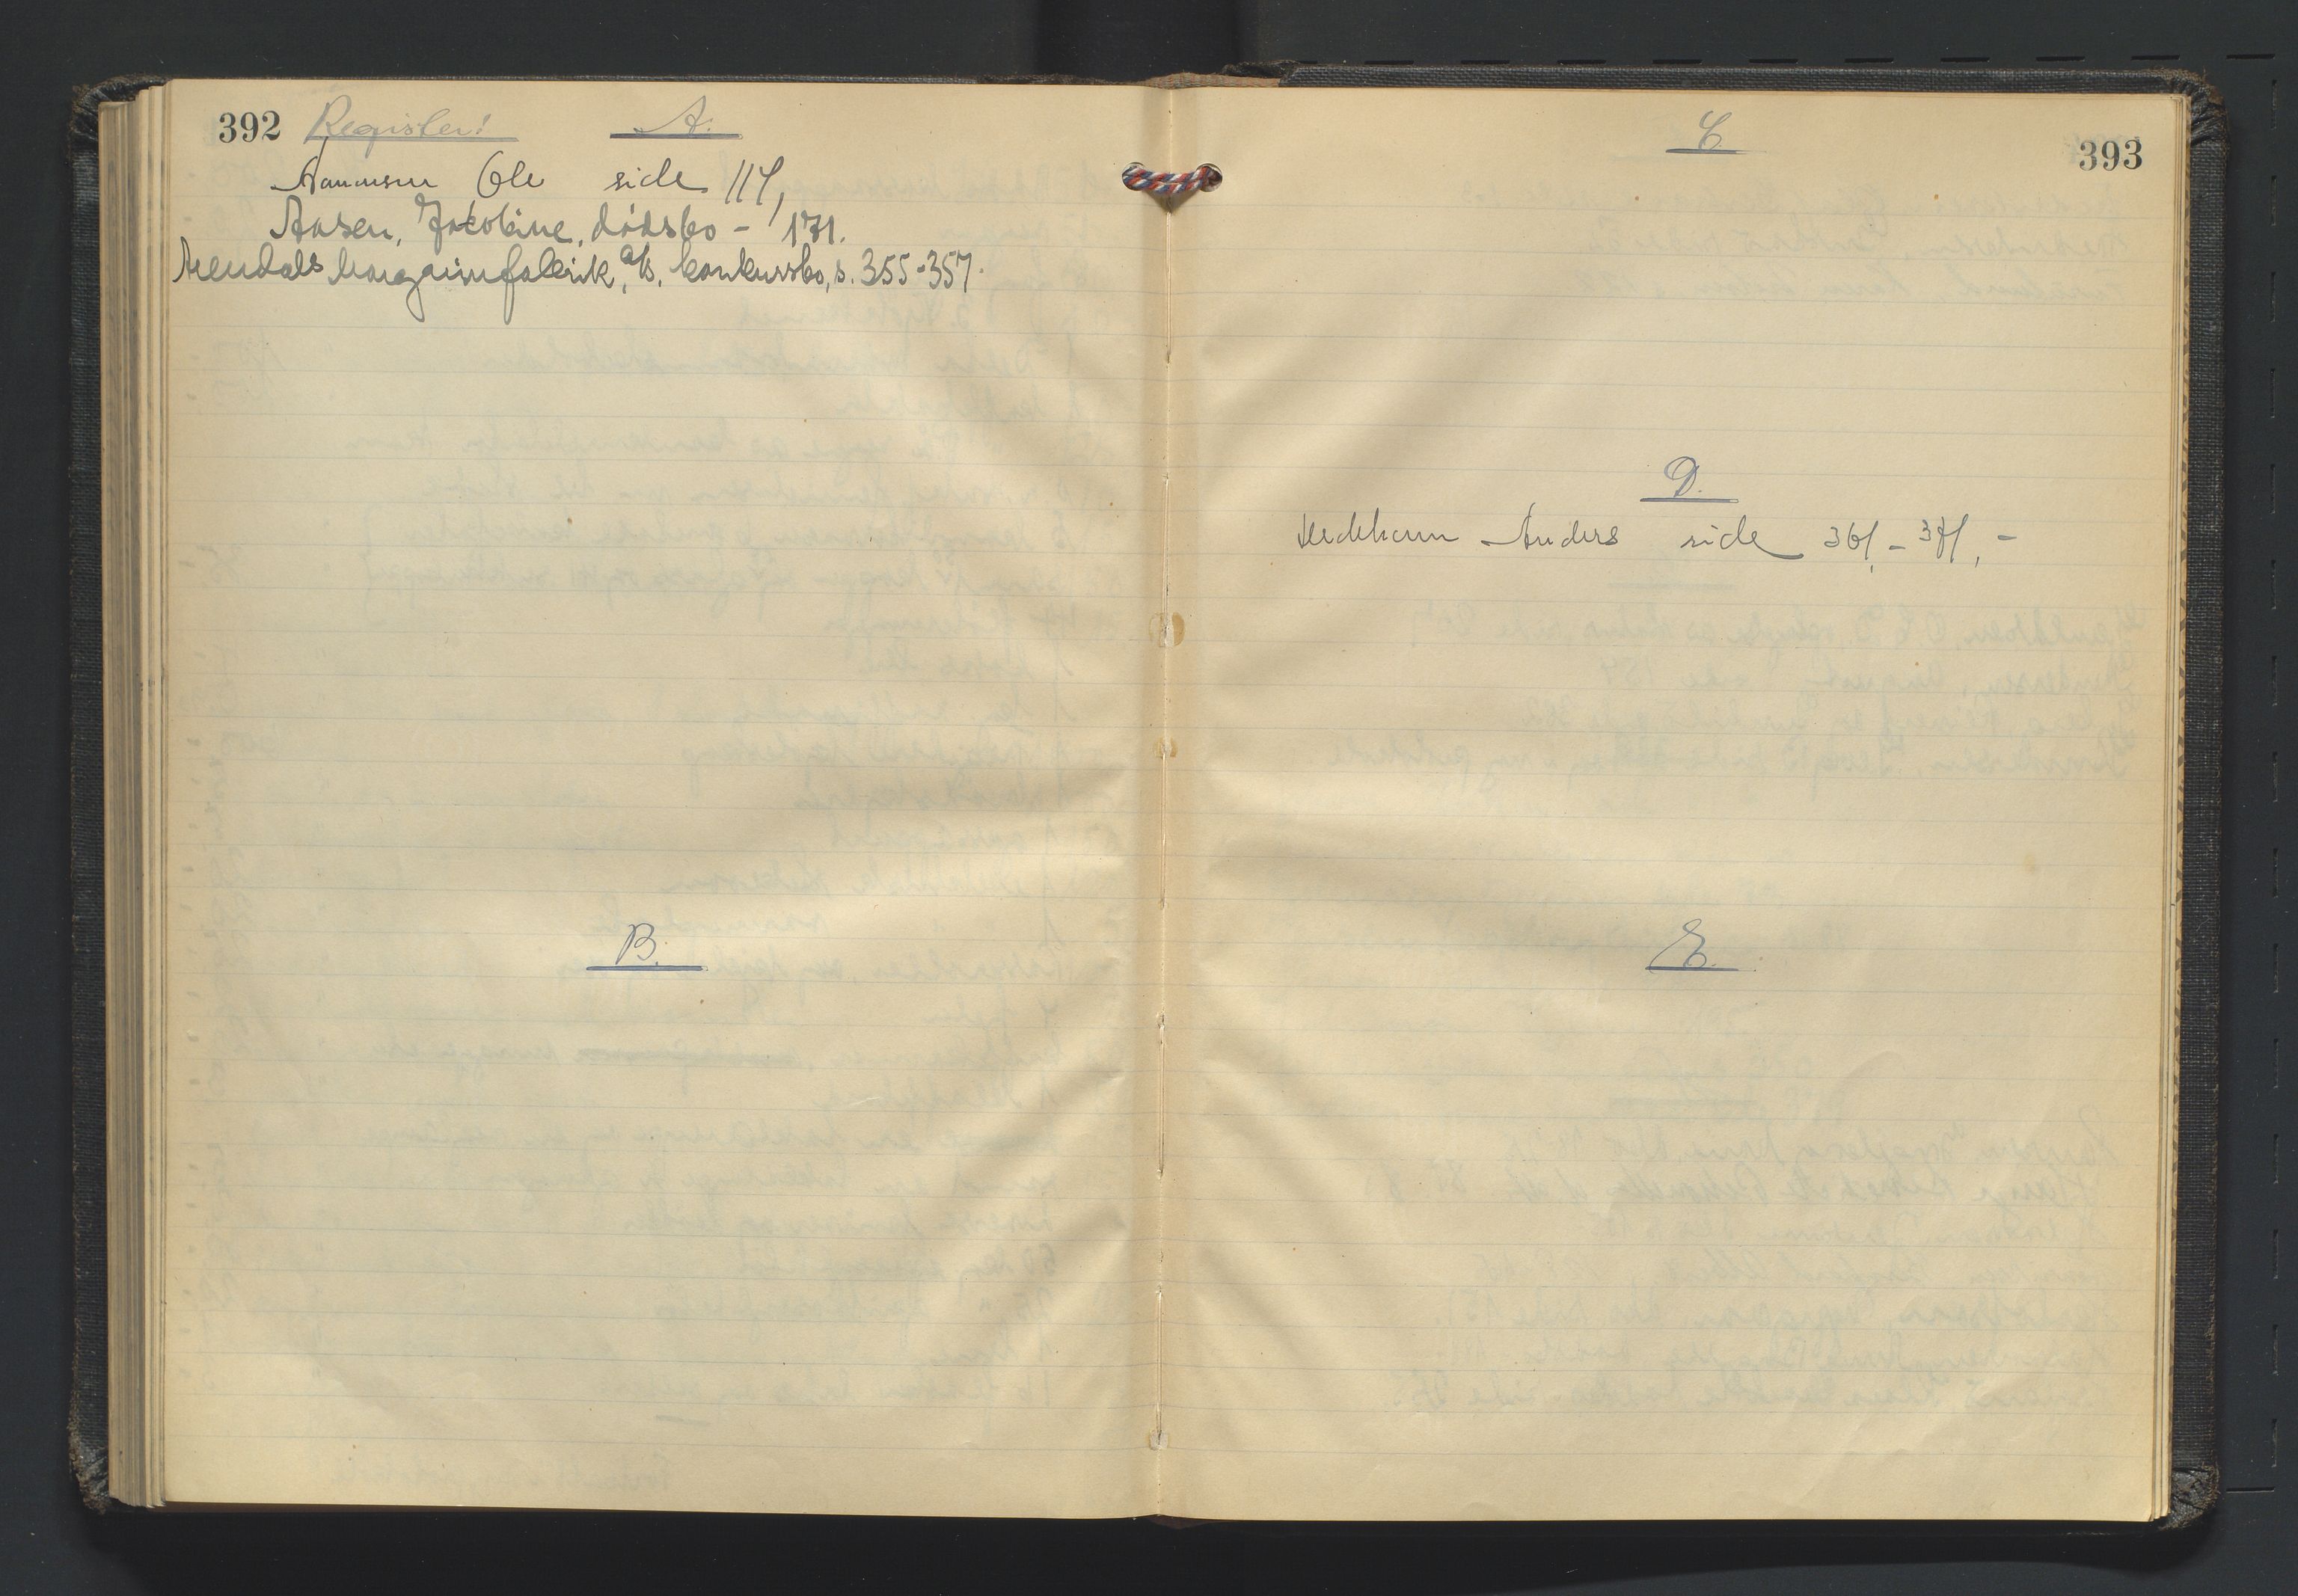 392 Register! A.
Ole side 114,
Aasen, Jakobine, dødsbo - 131.
Arendals Margarinfabrik, A/S, konkursbo, s. 355-357.
B.
C 393
D.
Anders side 361,- 371,-
E.